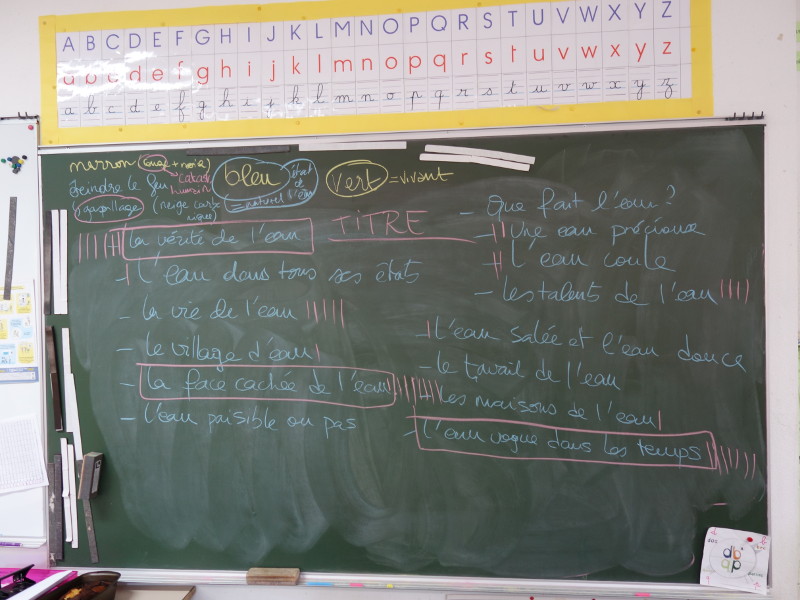 A B C D E F G H I J K L M N O P Q R S T U V W X Y Z
a b c d e f g h i j k l m n o p q r s t u v w x y z
a b c d e f g h i j k l m n o p q r s t u v w x y z
marron (rouge + noir)
éteindre le feu
humain
gaspillage (neige
bleu
état de l'eau
= naturel
vert = vivant
TITRE
la vérité de l'eau
- L'eau dans tous ses états
- la vie de l'eau
- le village d'eau
- la face cachée de l'eau
- l'eau paisible ou pas
- Que fait l'eau ?
- Une eau précieuse
- L'eau coule
- Les talents de l'eau
- L'eau salée et l'eau douce
- le travail de l'eau
- Les maisons de l'eau
- l'eau vogue dans les temps
db
qp